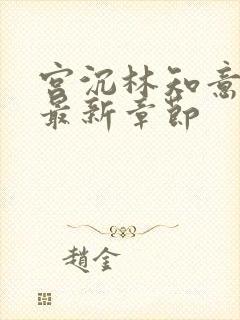 宫沉林知意
最新章節
趙金